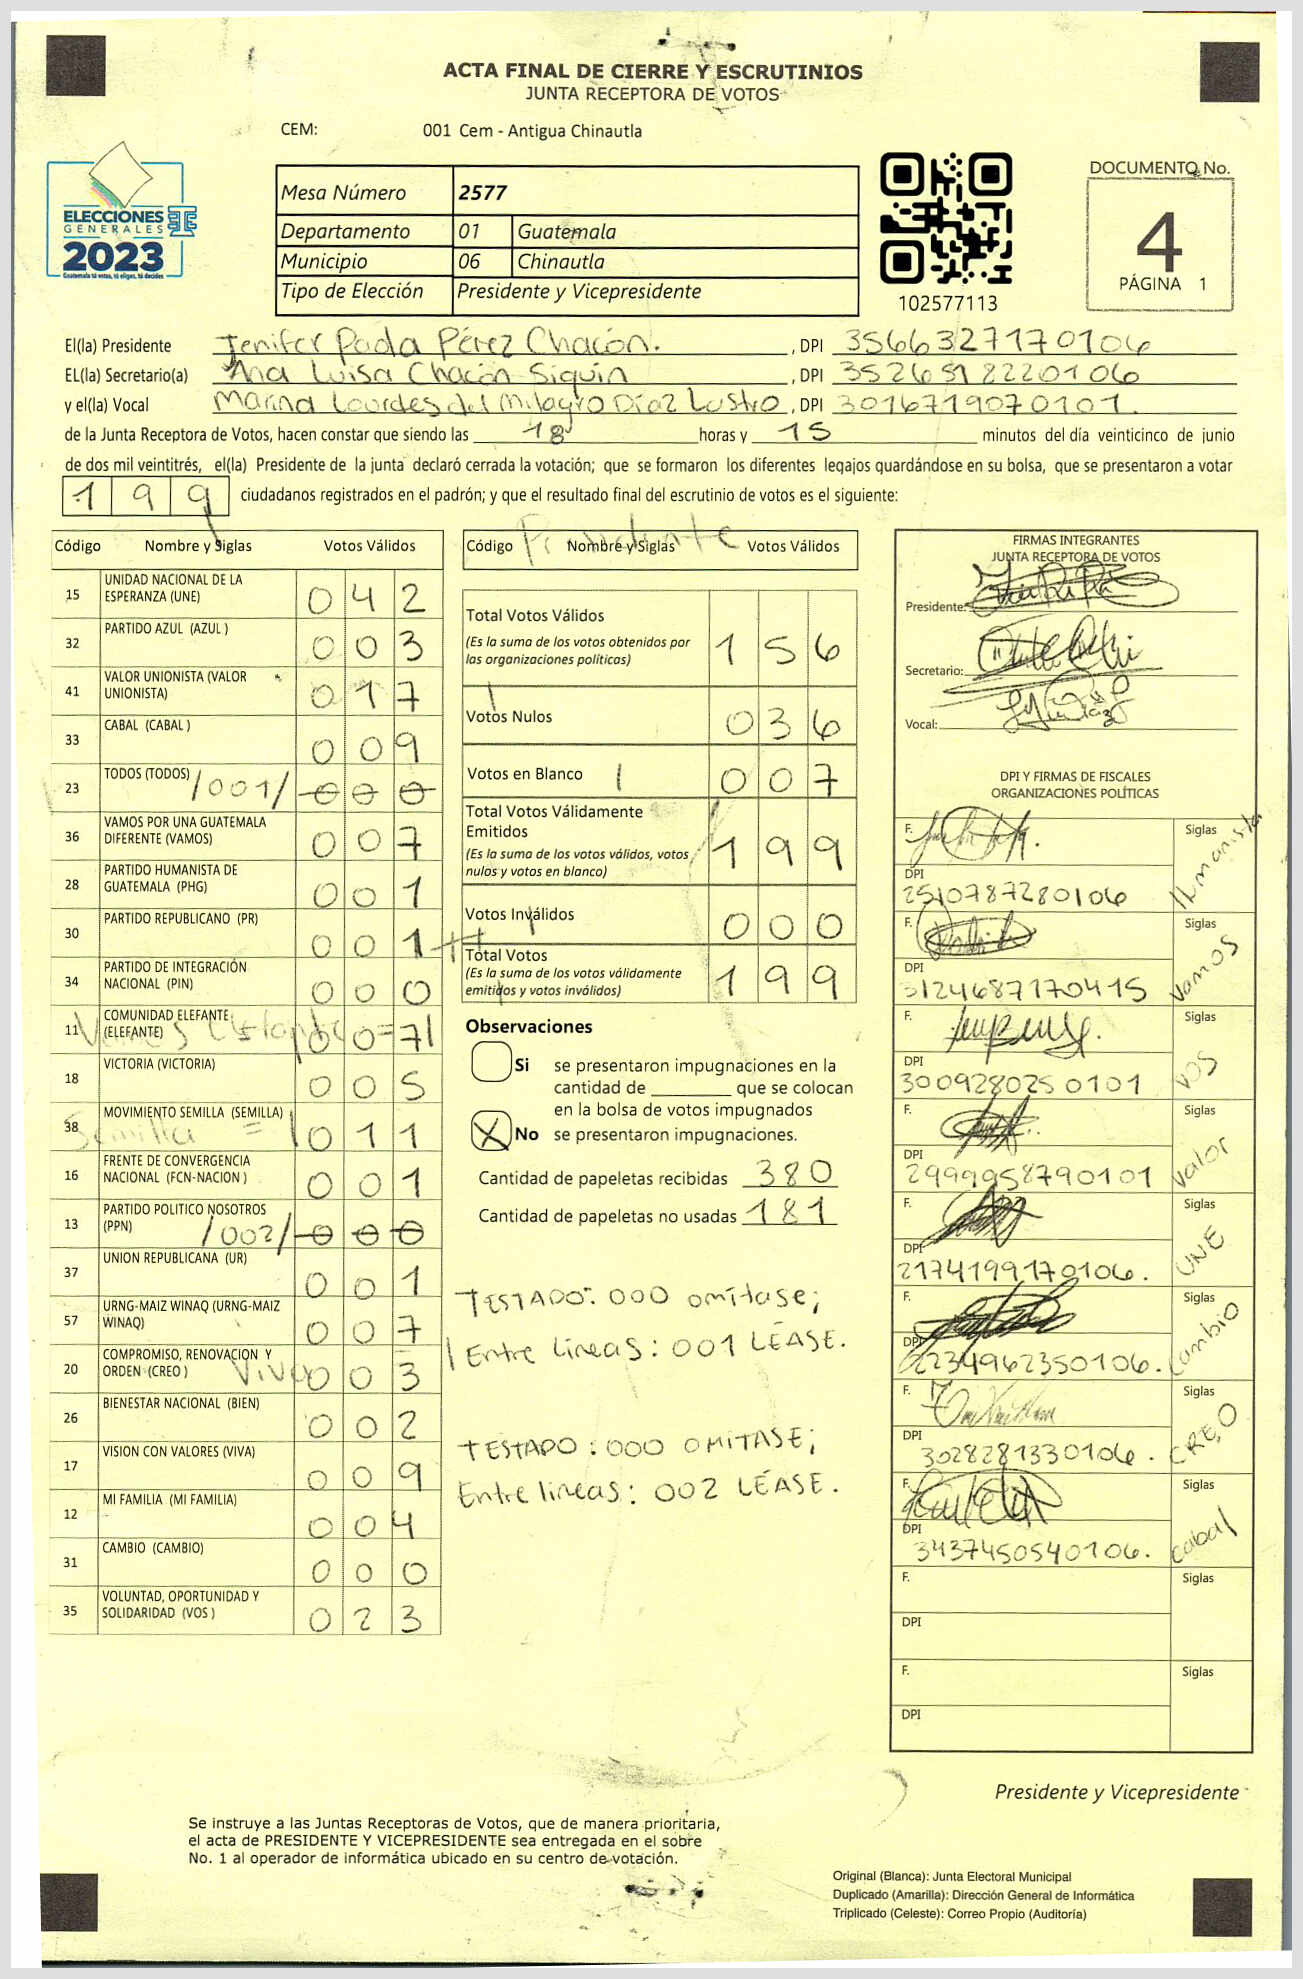 ACTA FINAL DE CIERRE Y ESCRUTINIOS
JUNTA RECEPTORA DE VOTOS
CEM: 001 Cem - Antigua Chinautla
ELECCIONES
GENERALES
2023
Guatemala tú votas, tú eliges, tú decides
Mesa Número 2577
Departamento 01 Guatemala
Municipio 06 Chinautla
Tipo de Elección Presidente y Vicepresidente
102577113
DOCUMENTO No.
4
PÁGINA 1
El(la) Presidente Jenifer Paola Pérez Chacón. , DPI 3566327170106
EL(la) Secretario(a) Ana Luisa Chacón Siquín , DPI 3526518220106
y el(la) Vocal Marina Lourdes del Milagro Díaz Lustro , DPI 3016719070101.
de la Junta Receptora de Votos, hacen constar que siendo las 18 horas y 15 minutos del día veinticinco de junio
de dos mil veintitrés, el(la) Presidente de la junta declaró cerrada la votación; que se formaron los diferentes legajos quardándose en su bolsa, que se presentaron a votar
199 ciudadanos registrados en el padrón; y que el resultado final del escrutinio de votos es el siguiente:
Código Nombre y Siglas Votos Válidos
15 UNIDAD NACIONAL DE LA ESPERANZA (UNE) 042
32 PARTIDO AZUL (AZUL ) 003
41 VALOR UNIONISTA (VALOR UNIONISTA) 017
33 CABAL (CABAL ) 009
23 TODOS (TODOS) /001/ 000
36 VAMOS POR UNA GUATEMALA DIFERENTE (VAMOS) 007
28 PARTIDO HUMANISTA DE GUATEMALA (PHG) 001
30 PARTIDO REPUBLICANO (PR) 001
34 PARTIDO DE INTEGRACIÓN NACIONAL (PIN) 000
11 COMUNIDAD ELEFANTE (ELEFANTE) 007
18 VICTORIA (VICTORIA) 005
38 MOVIMIENTO SEMILLA (SEMILLA) 011
Semilla =
16 FRENTE DE CONVERGENCIA NACIONAL (FCN-NACION ) 001
13 PARTIDO POLITICO NOSOTROS (PPN) /002/ 000
37 UNION REPUBLICANA (UR) 001
57 URNG-MAIZ WINAQ (URNG-MAIZ WINAQ) 007
20 COMPROMISO, RENOVACION Y ORDEN (CREO ) Viva 003
26 BIENESTAR NACIONAL (BIEN) 002
17 VISION CON VALORES (VIVA) 009
12 MI FAMILIA (MI FAMILIA) 004
31 CAMBIO (CAMBIO) 000
35 VOLUNTAD, OPORTUNIDAD Y SOLIDARIDAD (VOS ) 023
Presidente
Código Nombre y Siglas Votos Válidos
Total Votos Válidos 156
(Es la suma de los votos obtenidos por
las organizaciones políticas)
Votos Nulos 036
Votos en Blanco 007
Total Votos Válidamente
Emitidos 199
(Es la suma de los votos válidos, votos
nulos y votos en blanco)
Votos Inválidos 000
Total Votos 199
(Es la suma de los votos válidamente
emitidos y votos inválidos)
Observaciones
Si se presentaron impugnaciones en la
cantidad de ________ que se colocan
en la bolsa de votos impugnados
X No se presentaron impugnaciones.
Cantidad de papeletas recibidas 380
Cantidad de papeletas no usadas 181
TESTADO: 000 omítase;
Entre líneas: 001 LÉASE.
TESTADO: 000 OMITASE;
Entre líneas: 002 LÉASE.
FIRMAS INTEGRANTES
JUNTA RECEPTORA DE VOTOS
Presidente:
Secretario:
Vocal:
DPI Y FIRMAS DE FISCALES
ORGANIZACIONES POLÍTICAS
F. Siglas
DPI 2510787280106
F. Siglas Vamos
DPI 3124687170415
F. Siglas VOS
DPI 3009280250101
F. Siglas Valor
DPI 2999958790101
F. Siglas UNE
DPI 2174199170106.
F. Siglas Cambio
DPI 2234962350106.
F. Siglas CREO
DPI 3028281330106.
F. Siglas cabal
DPI 3437450540106.
F. Siglas
DPI
F. Siglas
DPI
Presidente y Vicepresidente
Se instruye a las Juntas Receptoras de Votos, que de manera prioritaria,
el acta de PRESIDENTE Y VICEPRESIDENTE sea entregada en el sobre
No. 1 al operador de informática ubicado en su centro de votación.
Original (Blanca): Junta Electoral Municipal
Duplicado (Amarilla): Dirección General de Informática
Triplicado (Celeste): Correo Propio (Auditoría)